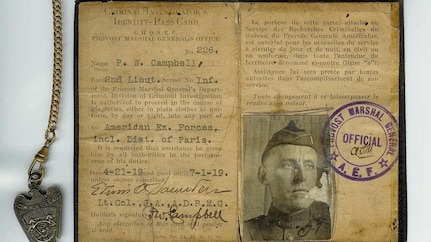 CRIMINAL INVESTIGATOR'S
IDENTITY-PASS CARD
G. H. Q. A. E. F.
PROVOST MARSHAL GENERALS OFFICE
No. 226.
Name P. W. Campbell,
Rank 2nd Lieut. Serial No. Inf.
of the Provost Marshal General's Department,
Division of Criminal Investigation,
is authorized to proceed in the course of
his duties, either in plain clothes or uniform,
by day or night, into any part of
American Ex. Forces,
incl. Dist. of Paris.
It is requested that aid be given
him by all authorities in the performance
of his duties.
From 4-21-19 good until 7-1-19.
unless sooner cancelled.
Lt. Col., G.A., A.D.P.M.G.
Holder's signature P.W. Campbell
Any alteration of this card will render
Le porteur de cette carte, attaché au
Service des Recherches Criminelles du
Bureau du Prevote Generale Américaine,
est autorisé pour les nécessités du service
à circuler, de jour et de nuit, en civil ou
en uniforme, dans toute l'étendue du
territoire dénommé ci-contre (ligne "a").
Assistance lui sera prêtée par toutes
autorités dans l'accomplissement de son
service.
Toute changement à ce laissez-passer le
rendra sans valeur.
PROVOST MARSHAL GENERAL
OFFICIAL
A. E. F.